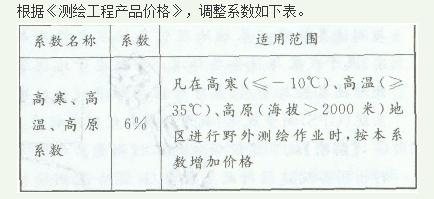 根据《测绘工程产品价格》，调整系数如下表。
系数名称 系数 适用范围
凡在高寒（≤－10℃）、高温（≥
高寒、高 35℃）、高原（海拔＞2000 米）地
温、高原 6% 区进行野外测绘作业时，按本系
系数 数增加价格